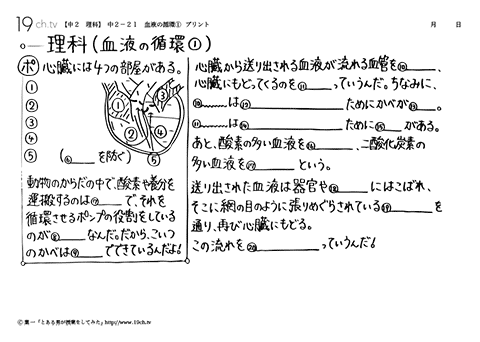 19ch.tv 【中2 理科】 中2-21 血液の循環① プリント 月 日
理科(血液の循環①)
ポ 心臓には4つの部屋がある。
①
②
③
④
⑤ (⑥ を防ぐ)
① ③
② ④
⑤
動物のからだの中で、酸素や養分を
運搬するのは⑦ で、それを
循環させるポンプの役割をしている
のが⑧ なんだ。だから、こいつ
のかべは⑨ でできているんだよ!
心臓から送り出される血液が流れる血管を⑩ 、
心臓にもどってくるのを⑪ っていうんだ。ちなみに、
⑩ は⑫ ためにかべが⑬ 。
⑪ は⑭ ために⑮ がある。
あと、酸素の多い血液を⑯ 、二酸化炭素の
多い血液を⑰ という。
送り出された血液は器官や⑱ にはこばれ、
そこに網の目のように張りめぐらされている⑲ を
通り、再び心臓にもどる。
この流れを⑳ っていうんだ!
© 葉一「とある男が授業をしてみた」http://www.19ch.tv